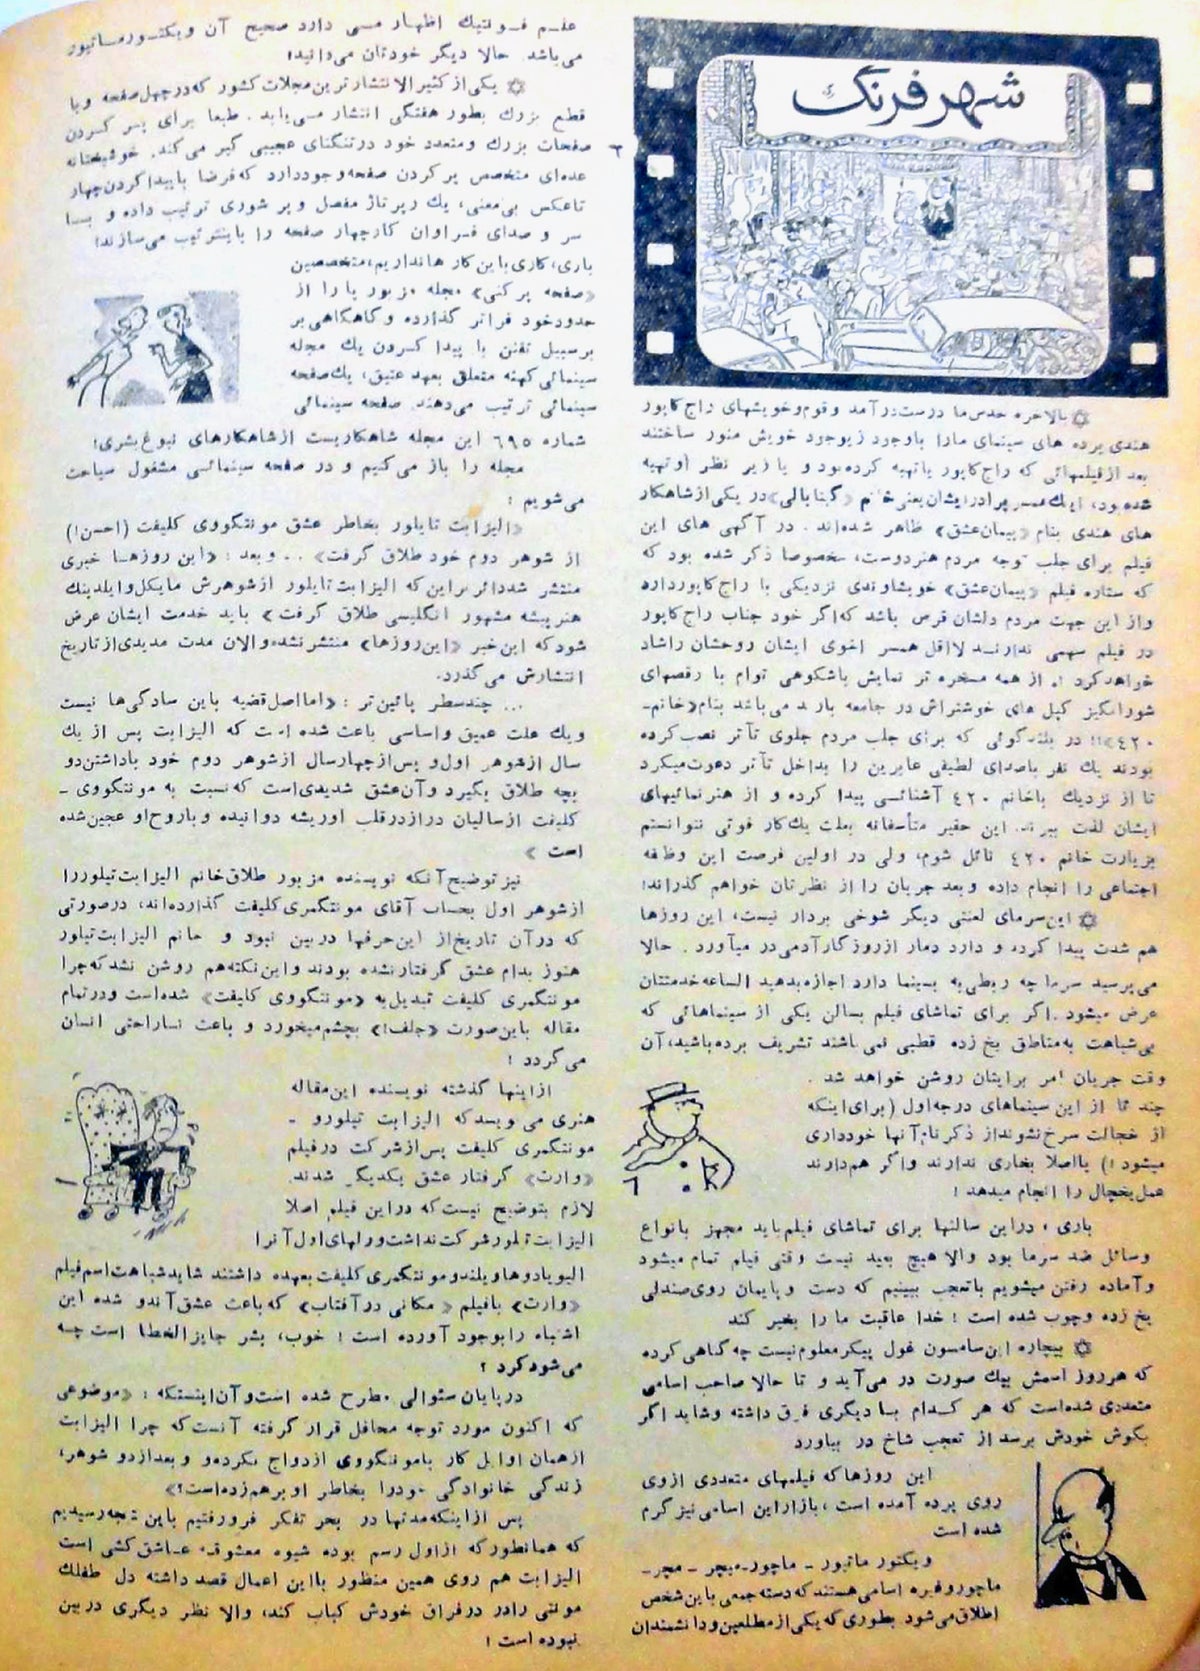 شهر فرنگ
بالاخره حدس ما درست در آمد و قوم و خویشهای راج کاپور
هندی پرده های سینمای ما را با وجود ذیوجود خویش منور ساختند
بعد از فیلمهائی که راج کاپور یا تهیه کرده بود و یا زیر نظر او تهیه
شده بود، اینک همسر برادر ایشان یعنی خانم «گیتا بالی» در یکی از شاهکار
های هندی بنام «پیمان عشق» ظاهر شده‌اند. در آگهی های این
فیلم برای جلب توجه مردم هنردوست، مخصوصا ذکر شده بود که
که ستاره فیلم «پیمان عشق» خویشاوندی نزدیکی با راج کاپور دارد
و از این جهت مردم دلشان قرص باشد که اگر خود جناب راج کاپور
در فیلم سهمی ندارند لااقل همسر اخوی ایشان روحشان را شاد
خواهد کرد !. از همه مسخره تر نمایش باشکوهی توام با رقصهای
شورانگیز کپل های خوشتراش در جامعه بارید می‌باشد بنام «خانم-
۴۲۰»!! در بلندگوئی که برای جلب مردم جلوی تآتر نصب کرده
بودند یک نفر با صدای لطیفی عابرین را بداخل تآتر دعوت میکرد
تا از نزدیک با خانم ۴۲۰ آشنائی پیدا کرده و از هنرنمائیهای
ایشان لذت ببرند. این حقیر متأسفانه بعلت یک کار فوتی نتوانستم
بزیارت خانم ۴۲۰ نائل شوم، ولی در اولین فرصت این وظیفه
اجتماعی را انجام داده و بعد جریان را از نظرتان خواهم گذراند!
این سرمای لعنتی دیگر شوخی بردار نیست، این روزها
هم شدت پیدا کرده و دارد دمار از روزگار آدمی در میآورد. حالا
می‌پرسید سرما چه ربطی به بسینما دارد اجازه بدهید الساعه خدمتتان
عرض میشود. اگر برای تماشای فیلم بسالن یکی از سینماهائی که
بی‌شباهت به مناطق یخ زده قطبی نمی‌باشند تشریف برده باشید، آن
وقت جریان امر برایتان روشن خواهد شد.
چند تا از این سینماهای درجه اول (برای اینکه
از خجالت سرخ نشوند از ذکر نام آنها خودداری
میشود!) یا اصلا بخاری ندارند و اگر هم دارند
عمل یخچال را انجام میدهد!
باری، در این سالنها برای تماشای فیلم باید مجهز بانواع
وسائل ضد سرما بود والا هیچ بعید نیست وقتی فیلم تمام میشود
و آماده رفتن میشویم با تعجب ببینیم که دست و پایمان روی صندلی
یخ زده و چوب شده است! خدا عاقبت ما را بخیر کند
بیچاره این سامسون غول پیکر معلوم نیست چه گناهی کرده
که هر روز اسمش بیک صورت در می‌آید و تا حالا صاحب اسامی
متعددی شده‌است که هر کدام با دیگری فرق داشته و شاید اگر
بگوش خودش برسد از تعجب شاخ در بیاورد
این روزها که فیلمهای متعددی ازوی
روی پرده آمده است، بازار این اسامی نیز گرم
شده است
ویکتور ماتیور - ماچور - میچر - مچر -
ماچور و غیره اسامی هستند که دسته جمعی باین شخص
اطلاق می‌شود بطوری که یکی از مطلعین و دانشمندان
علم فونتیک اظهار می دارد صحیح آن ویکتور ماتیور
می‌باشد. حالا دیگر خودتان می‌دانید!
یکی از کثیرالانتشارترین مجلات کشور که در چهل صفحه و با
قطع بزرگ بطور هفتگی انتشار می‌یابد. طبعا برای پر کردن
صفحات بزرگ و متعدد خود در تنگنای عجیبی گیر می‌کند. خوشبختانه
عده‌ای متخصص پر کردن صفحه وجود دارد که فرضا با پیدا کردن چهار
تا عکس بی‌معنی، یک رپرتاژ مفصل و پر شوری ترتیب داده و بسا
سر و صدای فراوان کار چهار صفحه را باینترتیب می‌سازند!
باری، کاری باین کارها نداریم، متخصصین
«صفحه پر کنی» مجله مزبور پا را از
حدود خود فراتر گذارده و گاهگاهی بر
برسبیل تفنن با پیدا کردن یک مجله
سینمائی کهنه متعلق بعهد عتیق، یک صفحه
سینمائی ترتیب می‌دهند. صفحه سینمائی
شماره ۶۹۵ این مجله شاهکاریست از شاهکارهای نبوغ بشری!
مجله را باز می‌کنیم و در صفحه سینمائی مشغول سیاحت
می‌شویم:
«الیزابت تایلور بخاطر عشق مونتگووی کلیفت (احسن!)
از شوهر دوم خود طلاق گرفت» .. و بعد: «این روزها خبری
منتشر شد دائر براین که الیزابت تایلور از شوهرش مایکل وایلدینک
هنرپیشه مشهور انگلیسی طلاق گرفت» باید خدمت ایشان عرض
شود که این خبر «این روزها» منتشر نشده و الان مدت مدیدی از تاریخ
انتشارش می‌گذرد.
... چند سطر پائین تر: «اما اصل قضیه باین سادگی‌ها نیست
و یک علت عمیق و اساسی باعث شده است که الیزابت پس از یک
سال از شوهر اول و پس از چهار سال از شوهر دوم خود با داشتن دو
بچه طلاق بگیرد و آن عشق شدیدی است که نسبت به مونتگووی -
کلیفت از سالیان دراز در قلب او ریشه دوانیده و با روح او عجین شده
است»
نیز توضیح آنکه نویسنده مزبور طلاق خانم الیزابت تیلور را
از شوهر اول بحساب آقای مونتگمری کلیفت گذارده‌اند، در صورتی
که در آن تاریخ از این حرفها در بین نبود و خانم الیزابت تیلور
هنوز بدام عشق گرفتار نشده بودند و این نکته هم روشن نشد که چرا
مونتگمری کلیفت تبدیل به «مونتگووی کلیفت» شده‌است و در تمام
مقاله باین صورت «جلف!» بچشم میخورد و باعث ناراحتی انسان
می‌گردد!
از اینها گذشته نویسنده این مقاله
هنری می‌نویسد که الیزابت تیلور و -
مونتگمری کلیفت پس از شرکت در فیلم
«وارث» گرفتار عشق یکدیگر شدند.
لازم بتوضیح نیست که در این فیلم اصلا
الیزابت تیلور شرکت نداشت و رلهای اول آنرا
الیویا دوهاویلند و مونتگمری کلیفت بعهده داشتند شاید شباهت اسم فیلم
«وارث» با فیلم «مکانی در آفتاب» که باعث عشق آندو شده این
اشتباه را بوجود آورده است! خوب، بشر جایزالخطا است چه
می‌شود کرد؟
در پایان سئوالی مطرح شده است و آن اینستکه: «موضوعی
که اکنون مورد توجه محافل قرار گرفته آنست که چرا الیزابت
از همان اوایل کار با مونتگووی ازدواج نکرده و بعد از دو شوهر،
زندگی خانوادگی خود را بخاطر او برهم زده است؟»
پس از اینکه مدتها در بحر تفکر فرو رفتیم باین نتیجه رسیدیم
که همانطور که از اول رسم بوده شیوه معشوقه عاشق کشی است
الیزابت هم روی همین منظور با این اعمال قصد داشته دل طفلک
مونتی را در در فراق خودش کباب کند، والا نظر دیگری در بین
نبوده است!